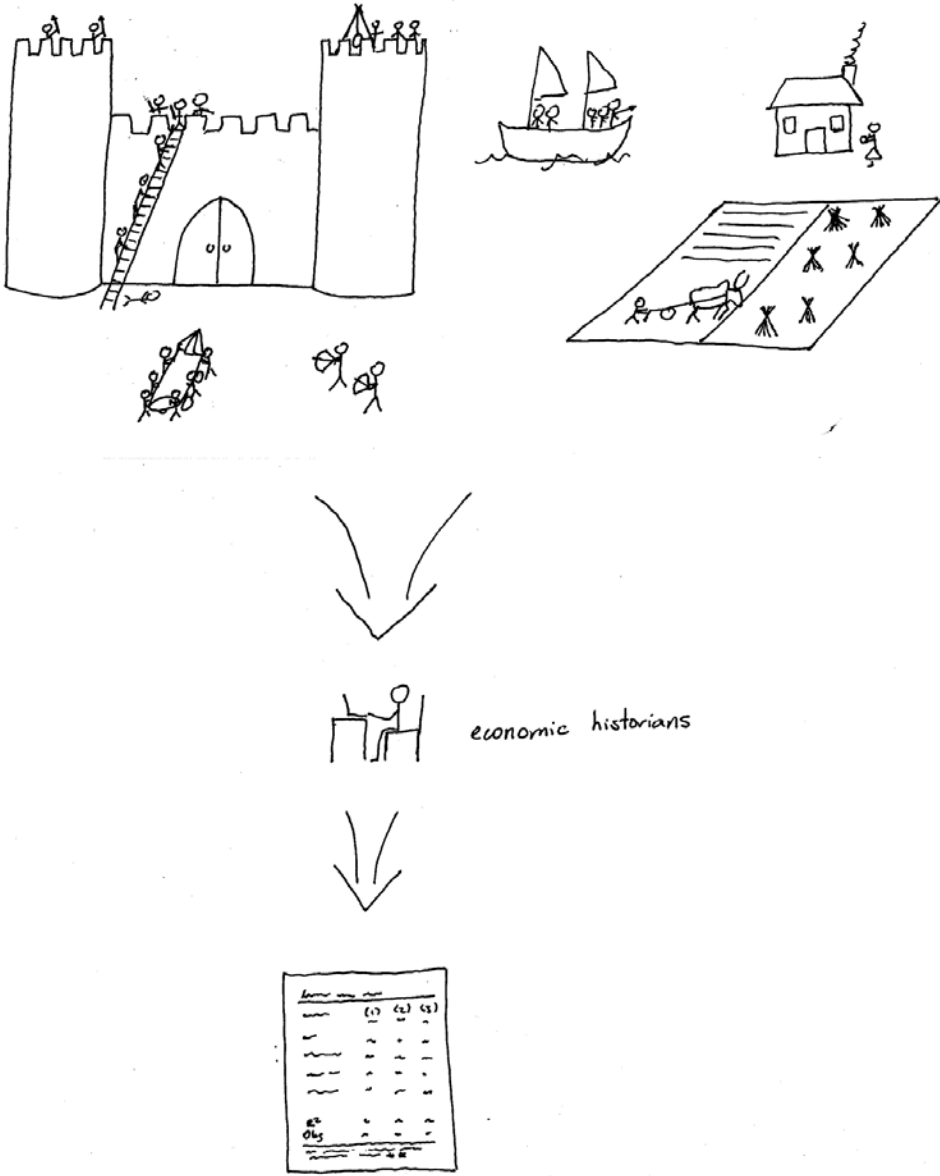 economic historians
(1) (2) (3)
R²
Obs